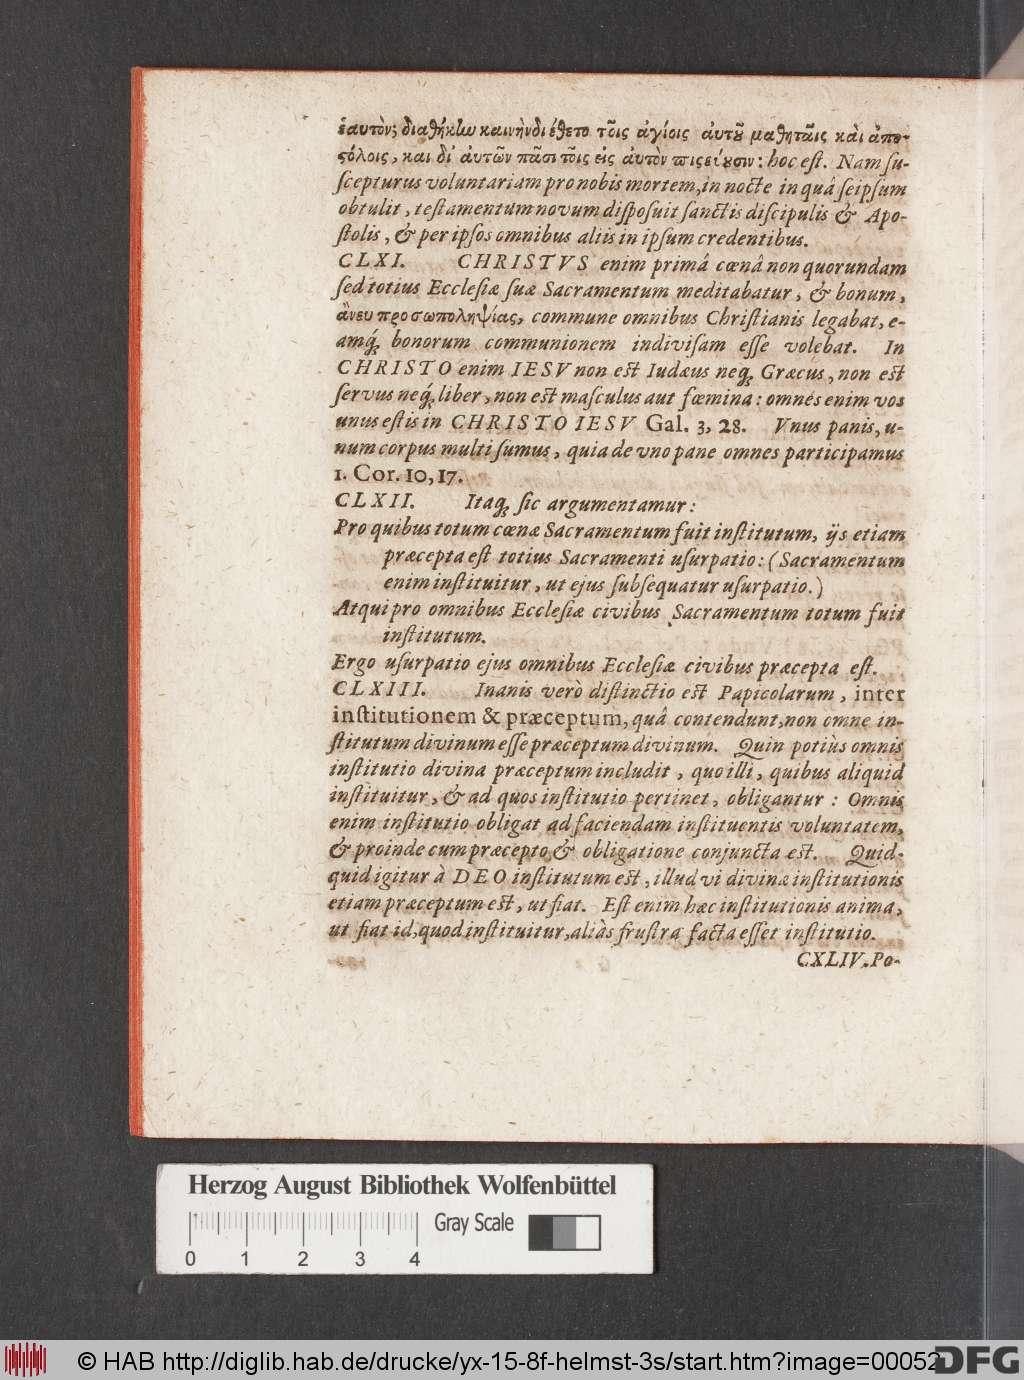 ἑαυτὸν; διαθήκlω καινὴνδιέθετο τοῖς ἁγίοις αὐτοῦ μαθηταῖς καὶ ἀπο-
ςόλοις, και δι' ἀυτῶν πᾶσι τοῖς εἰς ἀυτὸν πιςεύουσιν: hoc est. Nam su-
scepturus voluntariam pro nobis mortem, in nocte in quâ seipsum
obtulit, testamentum novum disposuit sanctis discipulis & Apo-
stolis, & per ipsos omnibus aliis in ipsum credentibus.
CLXI. CHRISTVS enim primâ cœnâ non quorundam
sed totius Ecclesiæ suæ Sacramentum meditabatur, & bonum,
ἄνευ προσωποληψίας, commune omnibus Christianis legabat, e-
amq́; bonorum communionem indivisam esse volebat. In
CHRISTO enim IESV non est Iudæus neq; Græcus, non est
servus neq́; liber, non est masculus aut fœmina: omnes enim vos
unus estis in CHRISTO IESV Gal. 3, 28. Vnus panis, u-
num corpus multi sumus, quia de vno pane omnes participamus
1. Cor. 10, 17.
CLXII. Itaq; sic argumentamur:
Pro quibus totum cœnæ Sacramentum fuit institutum, ijs etiam
præcepta est totius Sacramenti usurpatio: (Sacramentum
enim instituitur, ut ejus subsequatur usurpatio.)
Atqui pro omnibus Ecclesiæ civibus Sacramentum totum fuit
institutum.
Ergo usurpatio ejus omnibus Ecclesiæ civibus præcepta est.
CLXIII. Inanis verò distinctio est Papicolarum, inter
institutionem & præceptum, quâ contendunt, non omne in-
stitutum divinum esse præceptum divinum. Quin potiùs omnis
institutio divina præceptum includit, quo illi, quibus aliquid
instituitur, & ad quos institutio pertinet, obligantur: Omnis
enim institutio obligat ad faciendam instituentis voluntatem,
& proinde cum præcepto & obligatione conjuncta est. Quid-
quid igitur à DEO institutum est, illud vi divinæ institutionis
etiam præceptum est, ut fiat. Est enim hæc institutionis anima,
ut fiat id, quod instituitur, aliàs frustra facta esset institutio.
CXLIV. Po-
Herzog August Bibliothek Wolfenbüttel
Gray Scale
0 1 2 3 4
© HAB http://diglib.hab.de/drucke/yx-15-8f-helmst-3s/start.htm?image=00052
DFG